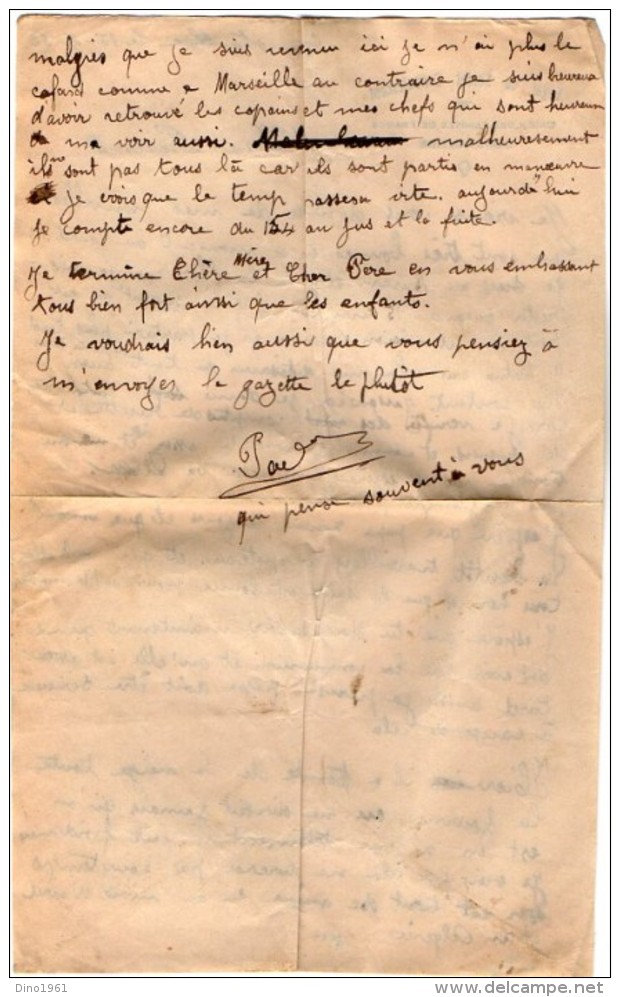 malgrés que je suis revenu ici je n'ai plus le
cafard comme a Marseille au contraire je suis heureux
d'avoir retrouvé les copains et mes chefs qui sont heureux
de ma voir aussi. malheuresement
ils ne sont pas tous là car ils sont partis en manœuvre
je crois que le temp passera vite. aujourd'hui
je compte encore du 154 au jus et la fuite.
Je termine Chère Mère et Cher Père en vous embrassant
tous bien fort ainsi que les enfants.
Je voudrais bien aussi que vous pensiez à
m'envoyer la gazette le plutôt
qui pense souvent à vous
Dino1961
www.delcampe.net